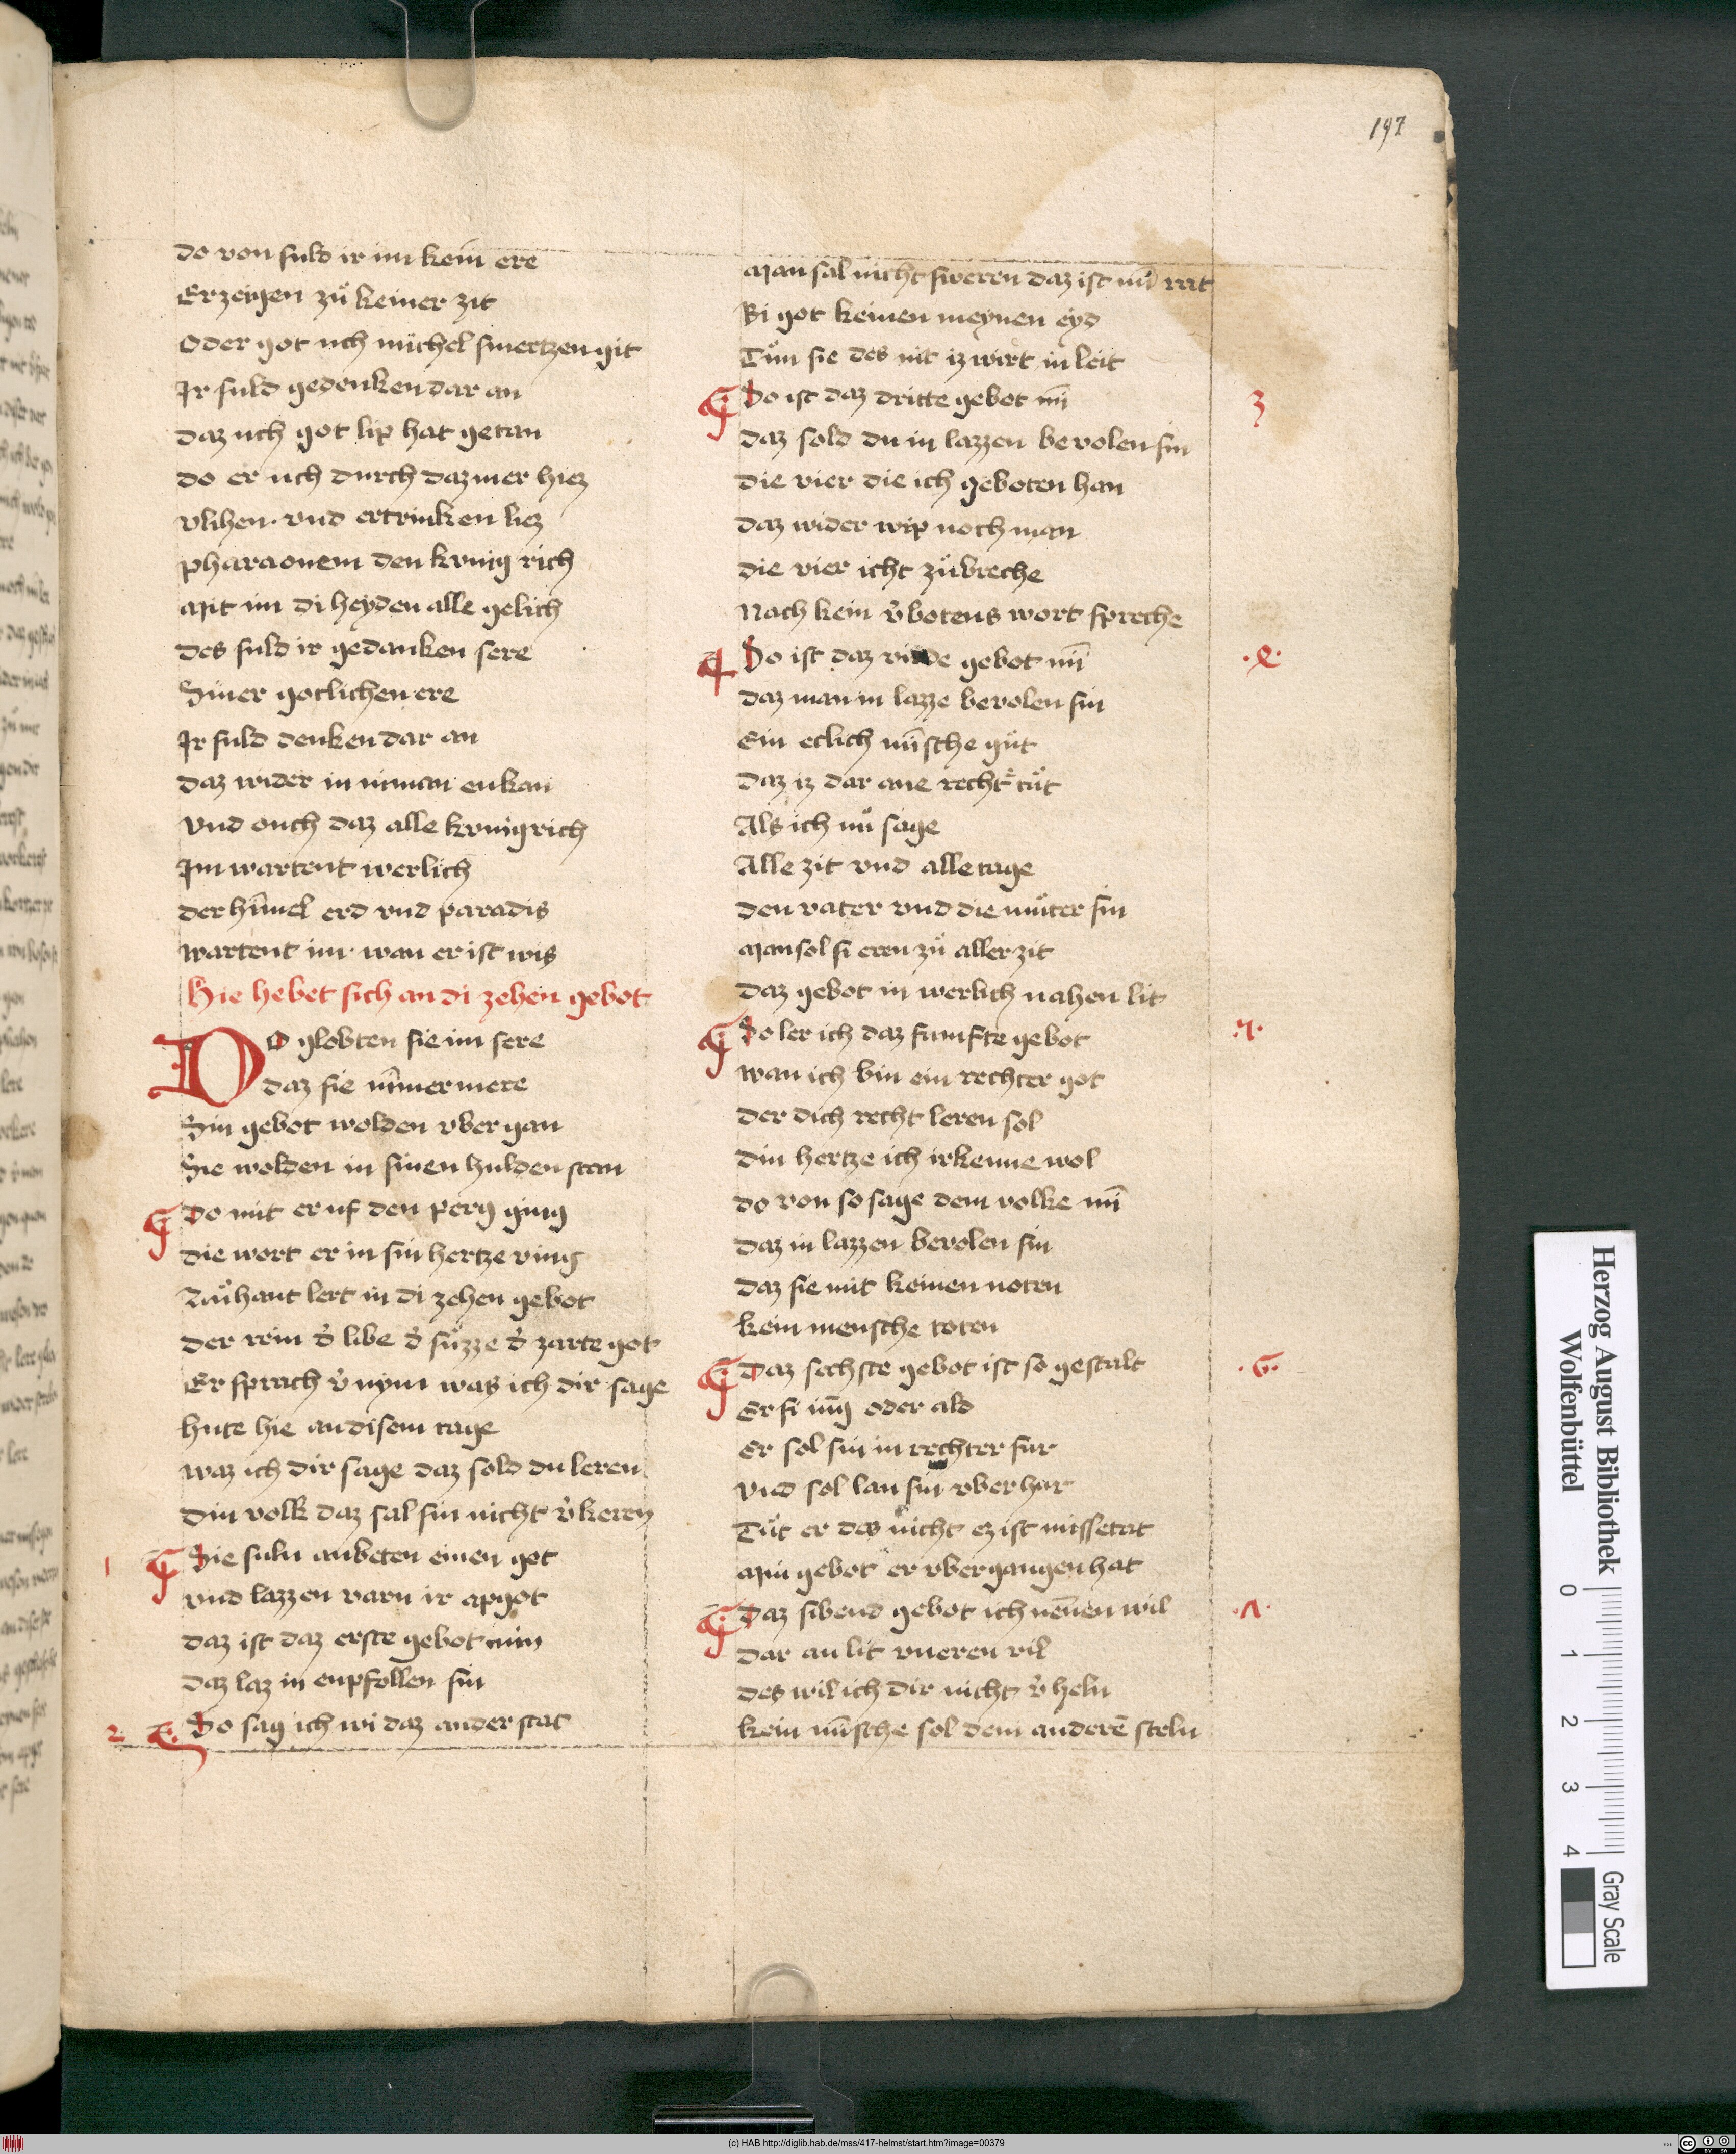 197
do von suld ir im kein ere
Erzeigen zuͦ keiner zit
Oder got uch michel smertzen git
Ir suld gedenken dar an
daz uch got lip hat getan
do er uch durch daz mer hiez
vlihen · vnd ertrinken liez
pharaonem den kvnig rich
Mit im di heyden alle gelich
des suld ir gedanken sere
Siner gotlichen ere
Ir suld denken dar an
daz wider in niman enkan
Vnd ouch daz alle kvnigrich
Im wartent werlich
der hīmel erd vnd paradis
wartent im wan er ist wis
Hie hebet sich an di zehen gebot
DO globten sie im sere
daz sie nīmer mere
Sin gebot wolden vber gan
Sie wolden in sinen hulden stan
Do mit er uf den perg ging
die wort er in sin hertze ving
Zuͦhant lert in di zehen gebot
der rein d̾ libe d̾ suͤzze d̾ zarte got
Er sprach v̾nym was ich dir sage
hute hie an disem tage
waz ich dir sage daz sold du leren
din volk daz sal sin nicht v̾keren
1 Sie suln anbeten einen got
vnd lazzen varn ir apgot
daz ist daz erste gebot min
daz laz in enpfollen sin
2 Do sag ich wi daz ander stat
Man sal nicht sweren daz ist mī rat
Bi got keinen meynen eyd
Tuͦn sie des nit iz wirt in leit
Do ist daz dritte gebot mī 3
daz sold du in lazzen bevolen sin
die vier die ich geboten han
daz wider wip noch man
die vier icht zuͦbreche
Nach kein v̾botens wort spreche
Do ist daz virde gebot mī ·4·
daz man in lazze bevolen sin
Ein eclich mīsche guͦt
daz iz dar ane recht tuͦt
Als ich nuͦ sage
Alle zit vnd alle tage
den vater vnd die muͦter sin
Man sol si eren zuͦ aller zit
daz gebot in werlich nahen lit
Do ler ich daz funfte gebot ·5·
wan ich bin ein rechter got
der dich recht leren sol
din hertze ich irkenne wol
do von so sage dem volke mī
daz in lazzen bevolen sin
daz sie mit keinen noten
kein mensche toten
Daz sechste gebot ist so gestalt ·6·
Er si iūg oder ald
Er sol sin in rechter fur
vnd sol lan sin vber hur
Tuͦt er das nicht ez ist missetat
Min gebot er vbergangen hat
Daz sibend gebot ich nēnen wil ·7·
dar an lit vneren vil
des wil ich dir nicht v̾heln
kein mīsche sol dem anderē steln
Herzog August Bibliothek
Wolfenbüttel
0 1 2 3 4
Gray Scale
(c) HAB http://diglib.hab.de/mss/417-helmst/start.htm?image=00379